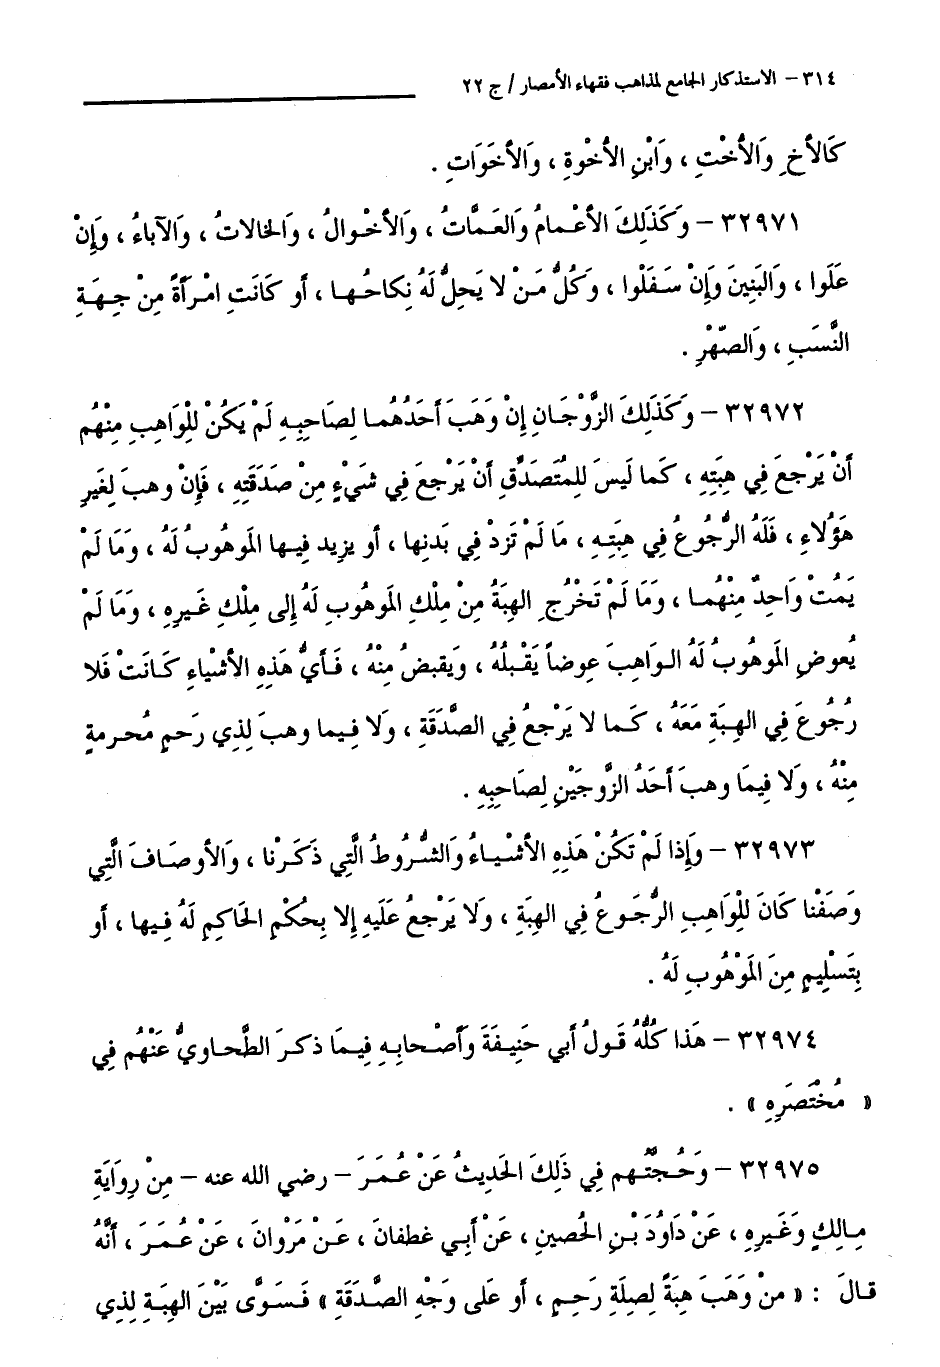 ٣١٤ – الاستذكار الجامع لمذاهب فقهاء الأمصار / ج ٢٢
كَالأخِ وَالأخْتِ ، وَابْنِ الأخْوةِ ، وَالأخَوَاتِ .
٣٢٩٧١ – وَكَذَلِكَ الأعْمامُ وَالعَمَّاتُ ، وَالأخْوالُ ، وَالخالاتُ ، وَالآباءُ ، وَإِنْ
عَلَوا ، وَالبَنِينَ وَإِنْ سَفَلُوا ، وَكُلُّ مَنْ لا يَحِلُّ لَهُ نِكاحُها ، أو كَانَتِ امْرَأَةً مِنْ جِهَةِ
النَّسَبِ ، وَالصّهْرِ .
٣٢٩٧٢ – وَكَذَلِكَ الزَّوْجَانِ إِنْ وَهَبَ أَحَدُهُما لِصَاحِبِهِ لَمْ يَكُنْ لِلْوَاهِبِ مِنْهُم
أَنْ يَرْجعَ فِي هِبَتِهِ ، كَما لَيسَ لِلمُتَصَدِّقِ أَنْ يَرْجعَ فِي شَيْءٍ مِنْ صَدَقَتِهِ ، فَإِنْ وهبَ لِغَيرِ
هَؤُلاءِ ، فَلَهُ الرُّجُوعُ فِي هِبَتِهِ ، مَا لَمْ تَزدْ فِي بَدنِها ، أو يزِيد فِيها المَوهُوبُ لَهُ ، وَمَا لَمْ
يَمُتْ وَاحِدٌ مِنْهُما ، وَمَا لَمْ تَخْرُجِ الهِبَةُ مِنْ مِلْكِ المَوهُوبِ لَهُ إِلى مِلْكِ غَيرِهِ ، وَمَا لَمْ
يُعوضِ المَوهُوبُ لَهُ الوَاهِبَ عِوضاً يَقْبلُهُ ، وَيَقبضُ مِنْهُ ، فَأَيُّ هَذِهِ الأَشْياءِ كَانَتْ فَلا
رُجُوعَ فِي الهِبَةِ مَعَهُ ، كَما لا يَرْجعُ فِي الصَّدَقَةِ ، وَلا فِيما وهبَ لِذِي رَحمٍ مُحرمةٍ
مِنْهُ ، وَلا فِيمَا وهبَ أَحَدُ الزَّوجَيْنِ لِصَاحِبِهِ .
٣٢٩٧٣ – وَإِذا لَمْ تَكُنْ هَذِهِ الأَشْياءُ وَالشُّرُوطُ الَّتِي ذَكَرْنا ، وَالأوصَافَ الَّتِي
وَصَفْنا كَانَ لِلْوَاهِبِ الرُّجَوعُ فِي الهِبَةِ ، وَلا يَرْجعُ عَلَيهِ إِلا بِحُكْمِ الحَاكِمِ لَهُ فِيها ، أو
بِتَسْلِيمٍ مِنَ المَوْهُوبِ لَهُ .
٣٢٩٧٤ – هَذا كُلُّهُ قَولُ أَبي حَنِيفَةَ وَأَصْحابِهِ فِيمَا ذكرَ الطَّحاويُّ عَنْهُم فِي
« مُخْتَصَرِهِ » .
٣٢٩٧٥ – وَحُجَّتُهم فِي ذَلِكَ الحَدِيثُ عَنْ عُمَرَ – رضي الله عنه – مِنْ رِوَايَةِ
مِالِكٍ وَغَيرِهِ ، عَنْ دَاوُدَ بْنِ الحُصينِ ، عَنْ أَبِي غطفانَ ، عَنْ مَرْوانَ ، عَنْ عُمَرَ ، أَنَّهُ
قالَ : « منْ وَهَبَ هِبَةً لِصِلَةِ رَحِمٍ ، أو عَلى وَجْهِ الصَّدَقَةِ » فَسَوَّى بَيْنَ الهِبَةِ لِذِي